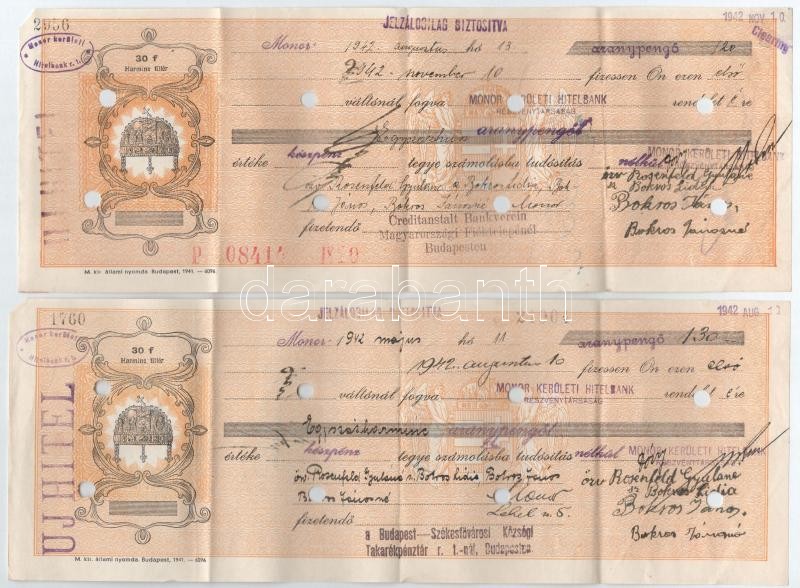 2956
JELZÁLOGILAG BIZTOSITVA
1942 NOV. 10.
Clearing
Monor kerületi
Hitelbank r. t.
30 f
Harminc fillér
Monor 1942. augusztus hó 13
aranypengő 120
1942. november 10 fizessen Ön ezen első
váltónál fogva MONOR KERÜLETI HITELBANK rendelt
RÉSZVÉNYTÁRSASÁG
aranypengőt
MONOR KERÜLETI HITELBANK
értéke készpénz tegye számolásba tudósítás nélkül
özv Rosenfeld Gyuláné
özv Rosenfeld Gyuláné Bokros Lidia
Bokros Lidia
János, Bokros Jánosné Monor
Bokros János,
Creditanstalt Bankverein
Bokros Jánosné
fizetendő Magyarországi Fióktelepénél
Budapesten
P 08414
M. kir. állami nyomda. Budapest, 1941. — 6096
1760
JELZÁLOGILAG
1942 AUG
Monor kerületi
Hitelbank r. t.
UJ HITEL
30 f
Harminc fillér
Monor 1942 május hó 11
aranypengő 130
1942. augusztus 10 fizessen Ön ezen első
váltónál fogva MONOR KERÜLETI HITELBANK rendelt
RÉSZVÉNYTÁRSASÁG
Egyszázharminc aranypengőt
MONOR KERÜLETI HITELBANK
értéke készpénz tegye számolásba tudósítás nélkül
özv Rosenfeld Gyuláné
öv Rosenfeld Gyuláné Bokros Lidia Bokros János
Bokros Lidia
Jánosné Monor
Bokros János.
fizetendő
Bokros Jánosné
a Budapest—Székesfővárosi Községi
Takarékpénztár r. t.-nál, Budapesten
M. kir. állami nyomda. Budapest, 1941. — 6096
darabanth